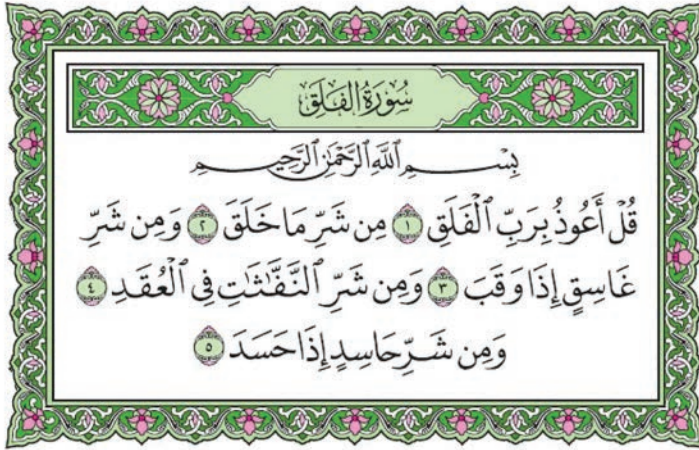 سُورَةُ الفَلَقِ
بِسْمِ ٱللَّهِ ٱلرَّحْمَٰنِ ٱلرَّحِيمِ
قُلْ أَعُوذُ بِرَبِّ ٱلْفَلَقِ ١ مِن شَرِّ مَا خَلَقَ ٢ وَمِن شَرِّ
غَاسِقٍ إِذَا وَقَبَ ٣ وَمِن شَرِّ ٱلنَّفَّٰثَٰتِ فِي ٱلْعُقَدِ ٤
وَمِن شَرِّ حَاسِدٍ إِذَا حَسَدَ ٥